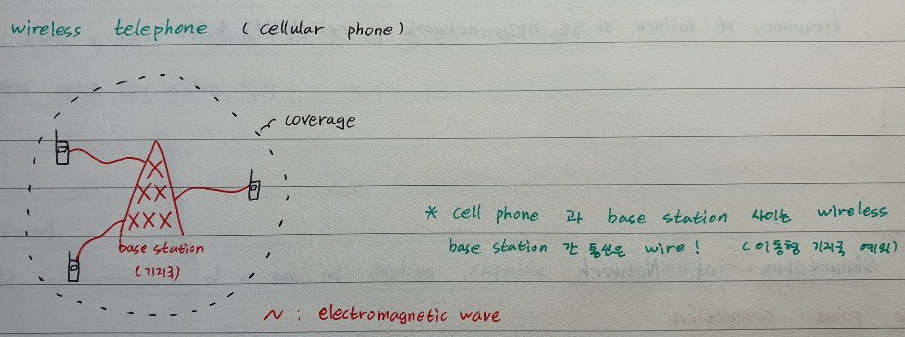 wireless telephone ( cellular phone )
coverage
* cell phone 과 base station 사이는 wireless
base station 간 통신은 wire! (이동형 기지국 예외)
base station
(기지국)
~ : electromagnetic wave